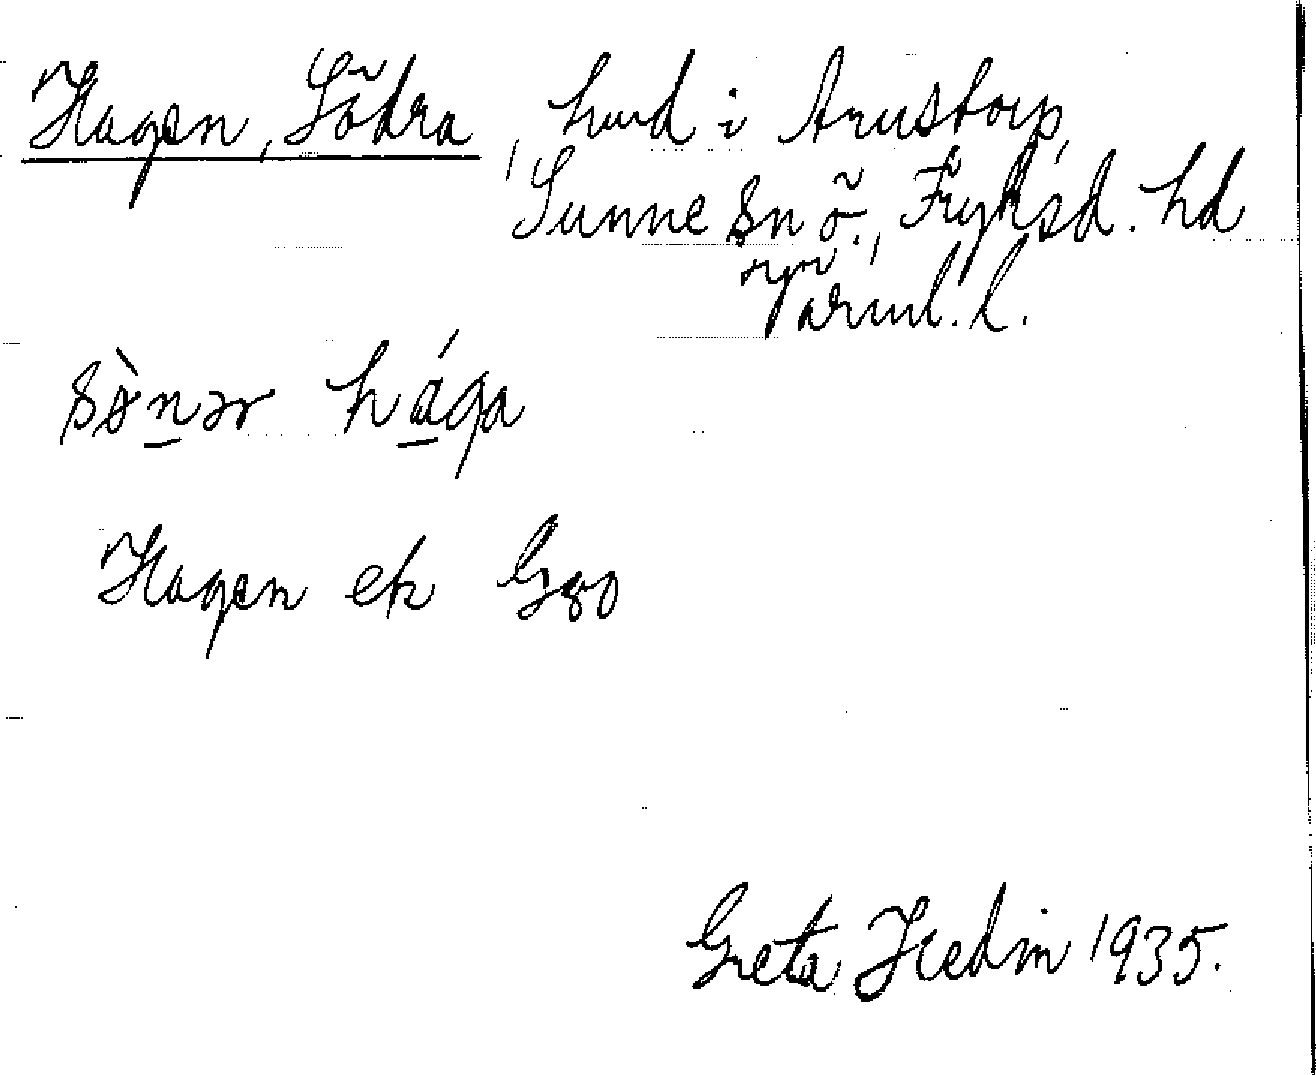 Hagen, Södra, hmd i Arnstorp,
Sunne sn ö., Fryksd. hd
Värml. l.
sö̀nər hága
Hagen ek G80
Greta Hedin 1935.